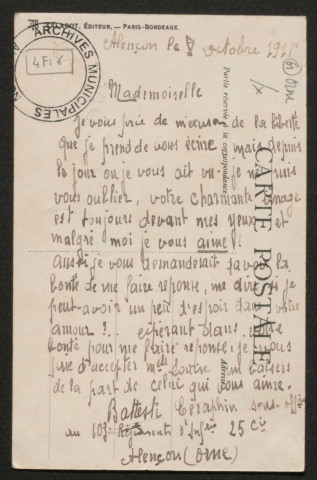 DELBOY, ÉDITEUR, — PARIS-BORDEAUX.
ARCHIVES MUNICIPALES
4Fi6
Alençon le 8 octobre
Orne
Mademoiselle
Je vous prie de m'excuser de la liberté
que je prend de vous écrire mais depuis
le jour ou je vous ait vu je ne puis
vous oublier, votre charmante image
est toujours devant mes yeux et
malgré moi je vous aime!
aussi je vous demanderait d'avoir la
bonté de me faire reponse, me dire si je
peut avoir un peu d'espoir dans votre
amour?. espérant dans votre
bonté pour me faire reponse je vous
prie d'accepter Melle Louise un baisers
de la part de celui qui vous aime.
Battesti Céraphin sous-offi
au 103e Régiment d'Infrie 25 Cie
Alençon (Orne)
Partie réservée à la correspondance
CARTE POSTALE
Adresse